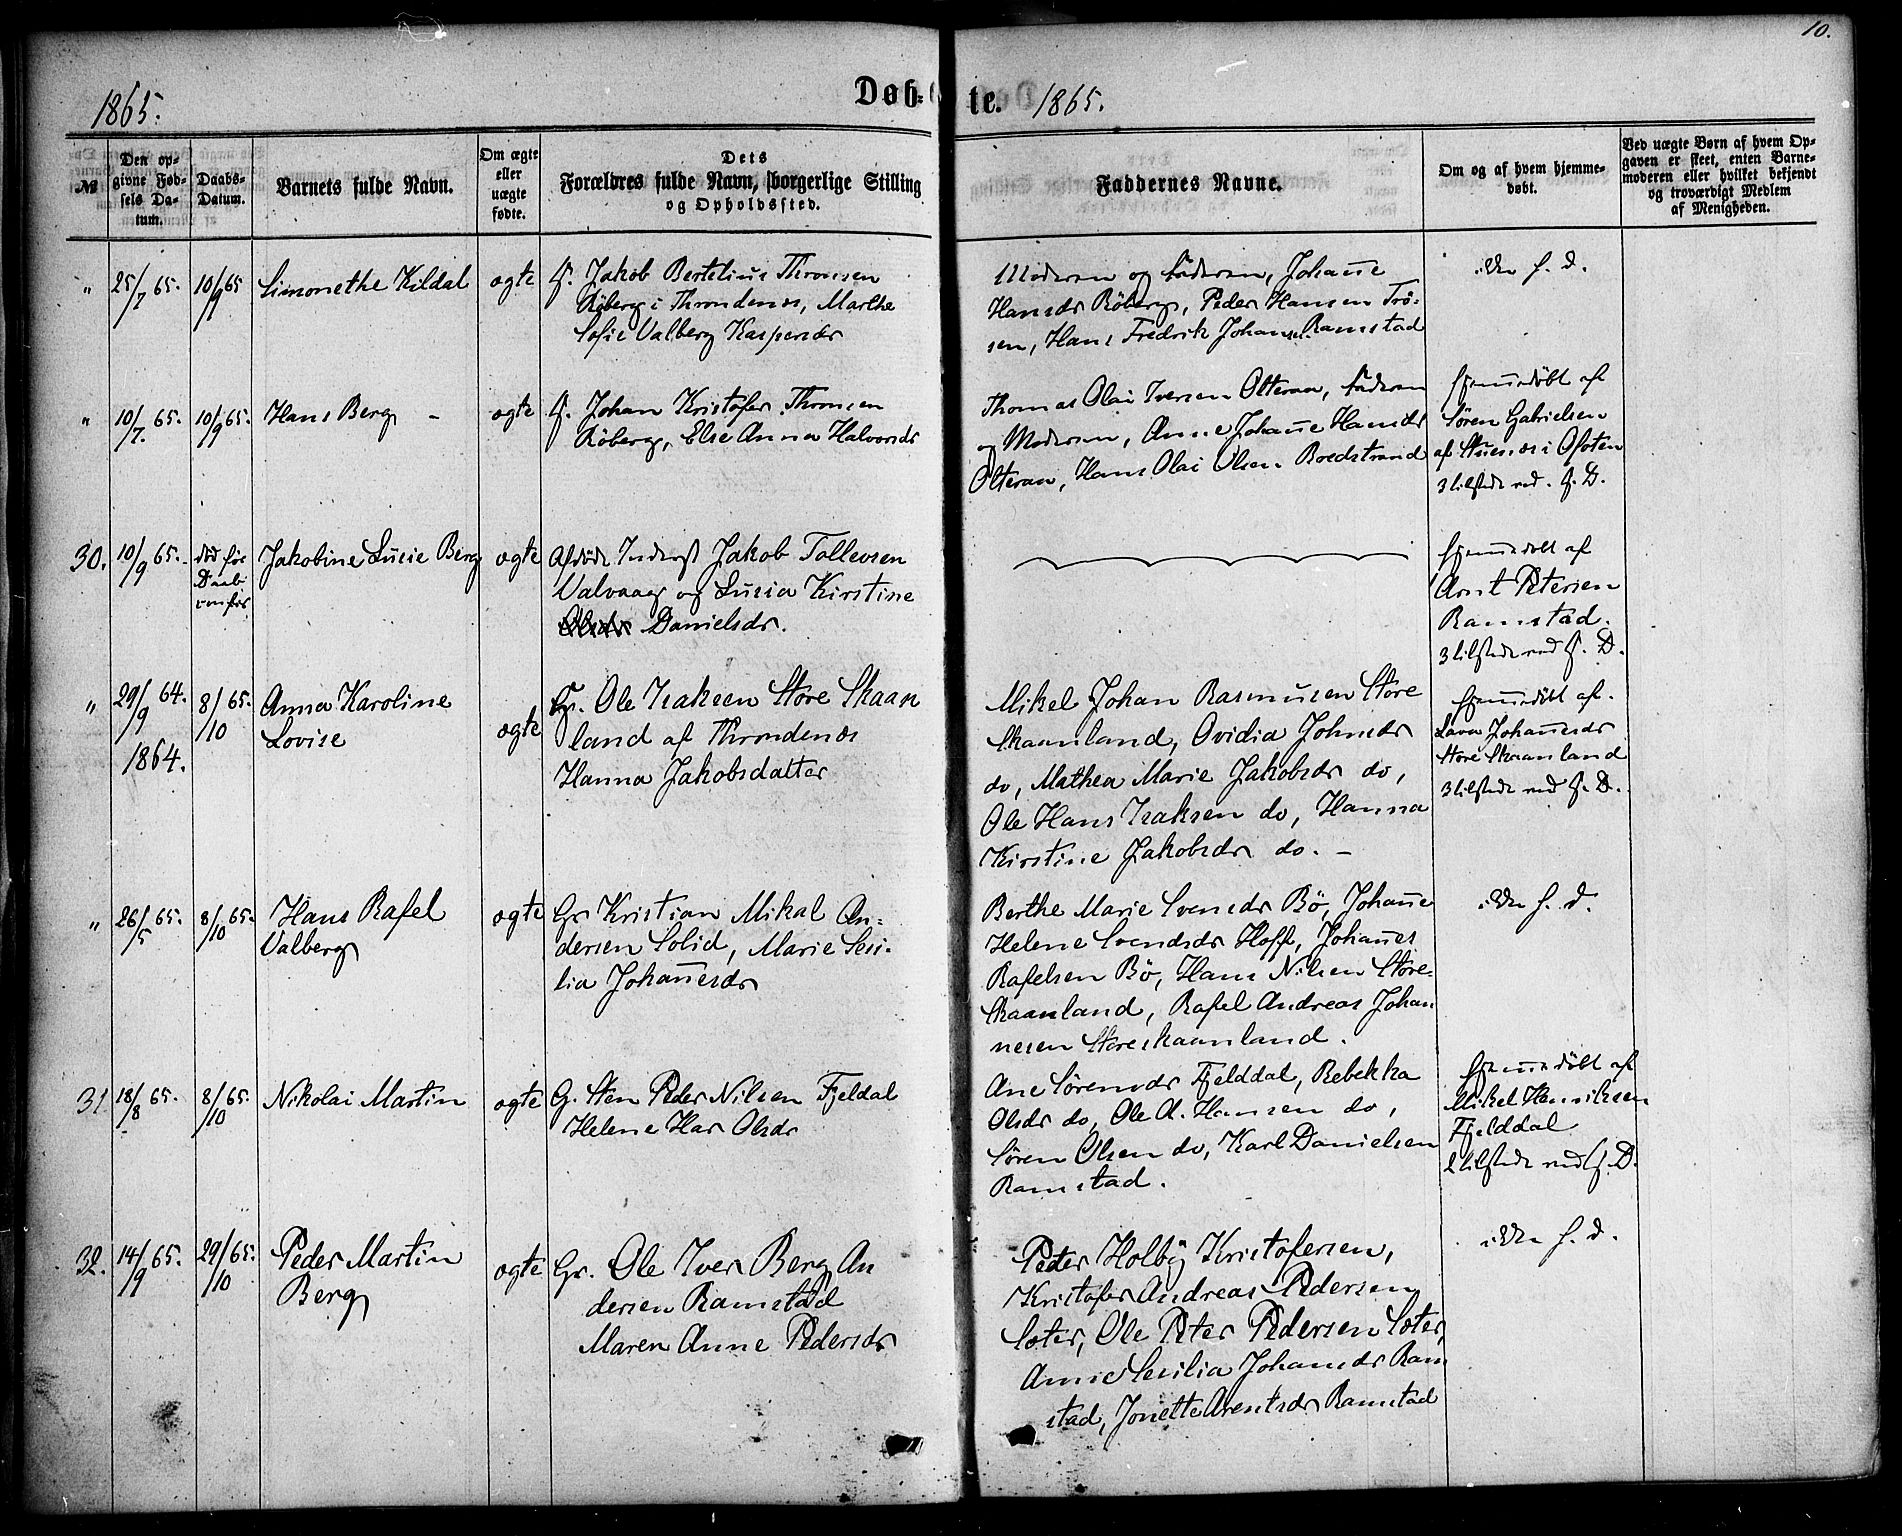 10.
1865.
Døb=
te.
1865.
№
Den op-
givne Fød-
sels Da-
tum.
Daabs-
Datum.
Barnets fulde Navn.
Om ægte
eller
uægte
fødte.
Dets
Forældres fulde Navn, borgerlige Stilling
og Opholdssted.
Faddernes Navne.
Om og af hvem hjemme-
døbt.
Ved uægte Børn af hvem Op-
gaven er skeet, enten Barne-
moderen eller hvilket bekjendt
og troværdigt Medlem
af Menigheden.
"
25/7 65.
10/9 65
Simonethe Kildal
ogte
Jakob Bertelius Thronsen
Röberg i Throndenes, Marthe
Sofie Valberg Kaspersdr
Moderen og Faderen, Johañe
Hansdr Röberg, Peder Hansen Trö-
sen, Hans Fredrik Johans. Ramstad
f. d.
"
10/7. 65.
10/9 65.
Hans Berg -
ogte
Johan Kristofer Thronsen
Röberg, Else Anna Halvorsdr
Thomas Olai Iversen Olteran, Faderen
og Moderen, Anne Johañe Hansdr
Olteran, Hans Olai Olsen Boedstrand
hjemmedöbt af
Sören Gabrielsen
af Stuenæs i Ofoten
3 tilstede ved H. D.
30.
10/9 65.
död för
Daab
Jakobine Lucie Berg
ogte
Afdöde Inderst Jakob Tollevsen
Valvaag og Lucia Kirstine
Olsdr Danielsdr.
hjemmedöbt af
Arnt Petersen
Ramstad.
3 tilstede ved H. D.
"
29/9 64.
1864.
8/10 65.
Anna Karoline
Lovise
ogte
Gr. Ole Isaksen Store Skaan
land af Throndenæs
Hanna Jakobsdatter
Mikel Johan Rasmusen Store
Skaanland, Ovidia Johnsdr
do, Mathea Marie Jakobsdr do,
Ole Hans Isaksen do, Hanna
Kirstine Jakobsdr do. -
hjemmedöbt af
Lava Johañesdr
Store Skaanland
3 tilstede ved H. D.
"
26/5 65.
8/10 65.
Hans Rafel
Valberg
ogte
Gr Kristian Mikal An-
dersen Solid, Marie Sesi-
lia Johañesdr
Berthe Marie Svensdr Bö, Johañe
Helene Svendsdr Hoffe, Johañes
Rafelsen Bö, Hans Nilsen Store-
Skaanland, Rafel Andreas Johan
nesen Storeskaanland.
f. d.
31
18/8 65.
8/10 65.
Nikolai Martin
ogte
G. Sten Peder Nilsen Fjeldal
Helene Har Olsdr
Ane Sörensdr Fjelddal, Rebekka
Olsdr do, Ole A. Hansen do,
Sören Olsen do, Karl Danielsen
Ramstad.
hjemmedöbt af
Mikel Henriksen
Fjelddal
2 tilstede ved H. D.
32.
14/9 65.
29/10 65.
Peder Martin
Berg
ogte
Gr. Ole Iver Berg An
dersen Ramstad
Maren Anne Pedersdr
Peder Holby Kristofersen,
Kristofer Andreas Pedersen
Sæter, Ole Peter Pedersen Sæter,
Anne Sesilia Johansdr Ram
stad, Jonette Arentsdr Ramstad
f. d.